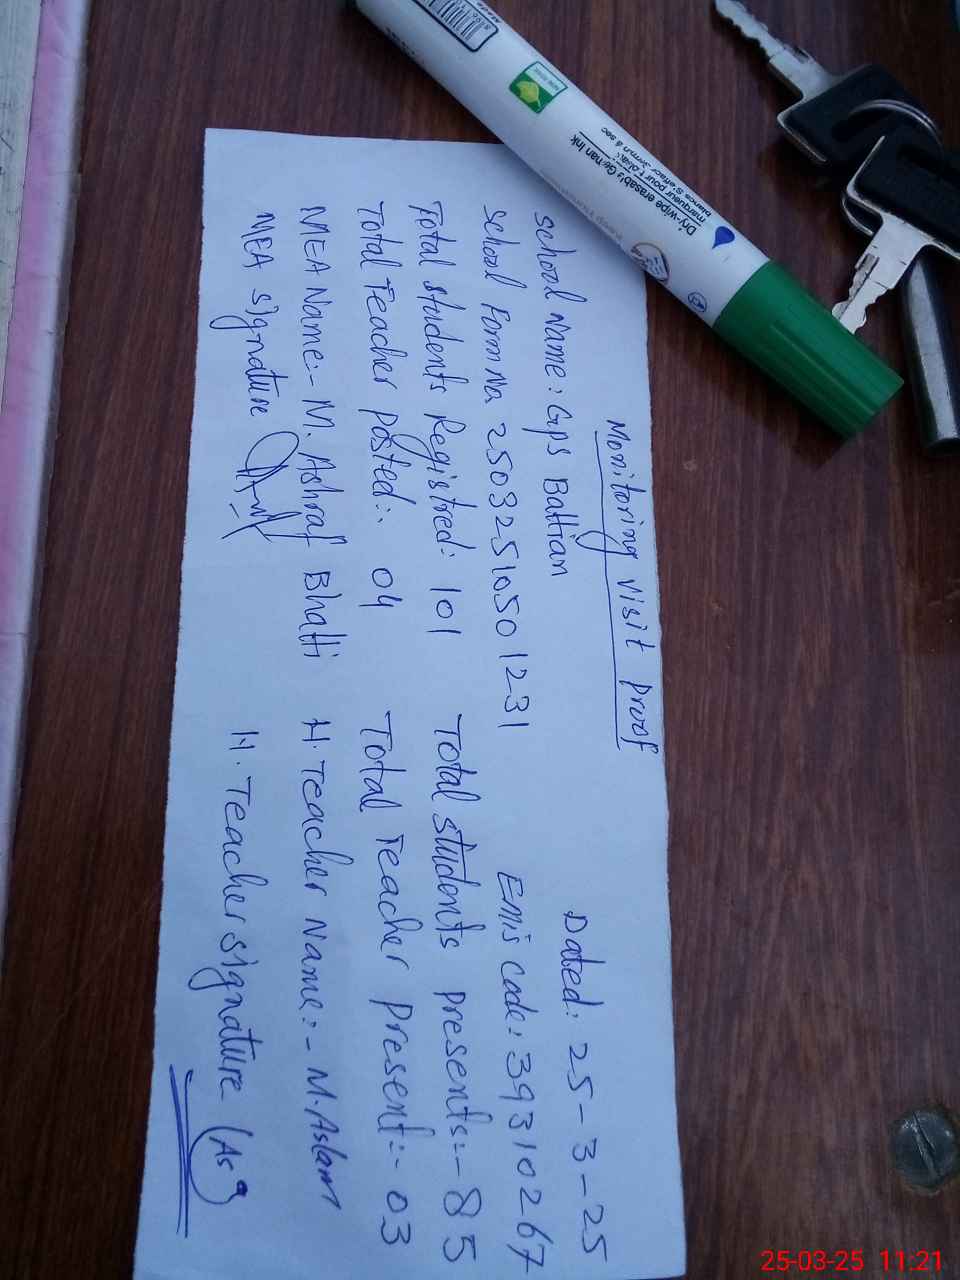 Monitoring visit proof
Dated: 25-3-25
School Name: Gps Battian
School Form No 2503251050 1231 Emis code: 39310267
Total students Registred: 101 Total students presents:- 85
Total Teacher posted:- 04 Total Teacher Present:- 03
MEA Name:- M. Ashraf Bhatti H. Teacher Name:- M. Aslam
MEA signature H. Teacher signature
Dry-wipe erasable German Ink
25-03-25 11:21